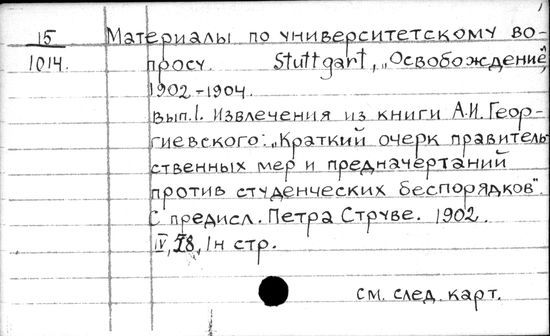 15 Материалы по университетскому во-
1014. просу. Stuttgart, „Освобождение",
1902-1904.
Вып.1. Извлечения из книги А.И. Геор-
гиевского: „Краткий очерк правитель
ственных мер и предначертаний
против студенческих беспорядков".
С предисл. Петра Струве. 1902.
IV, 78, 1н стр.
см. след. карт.